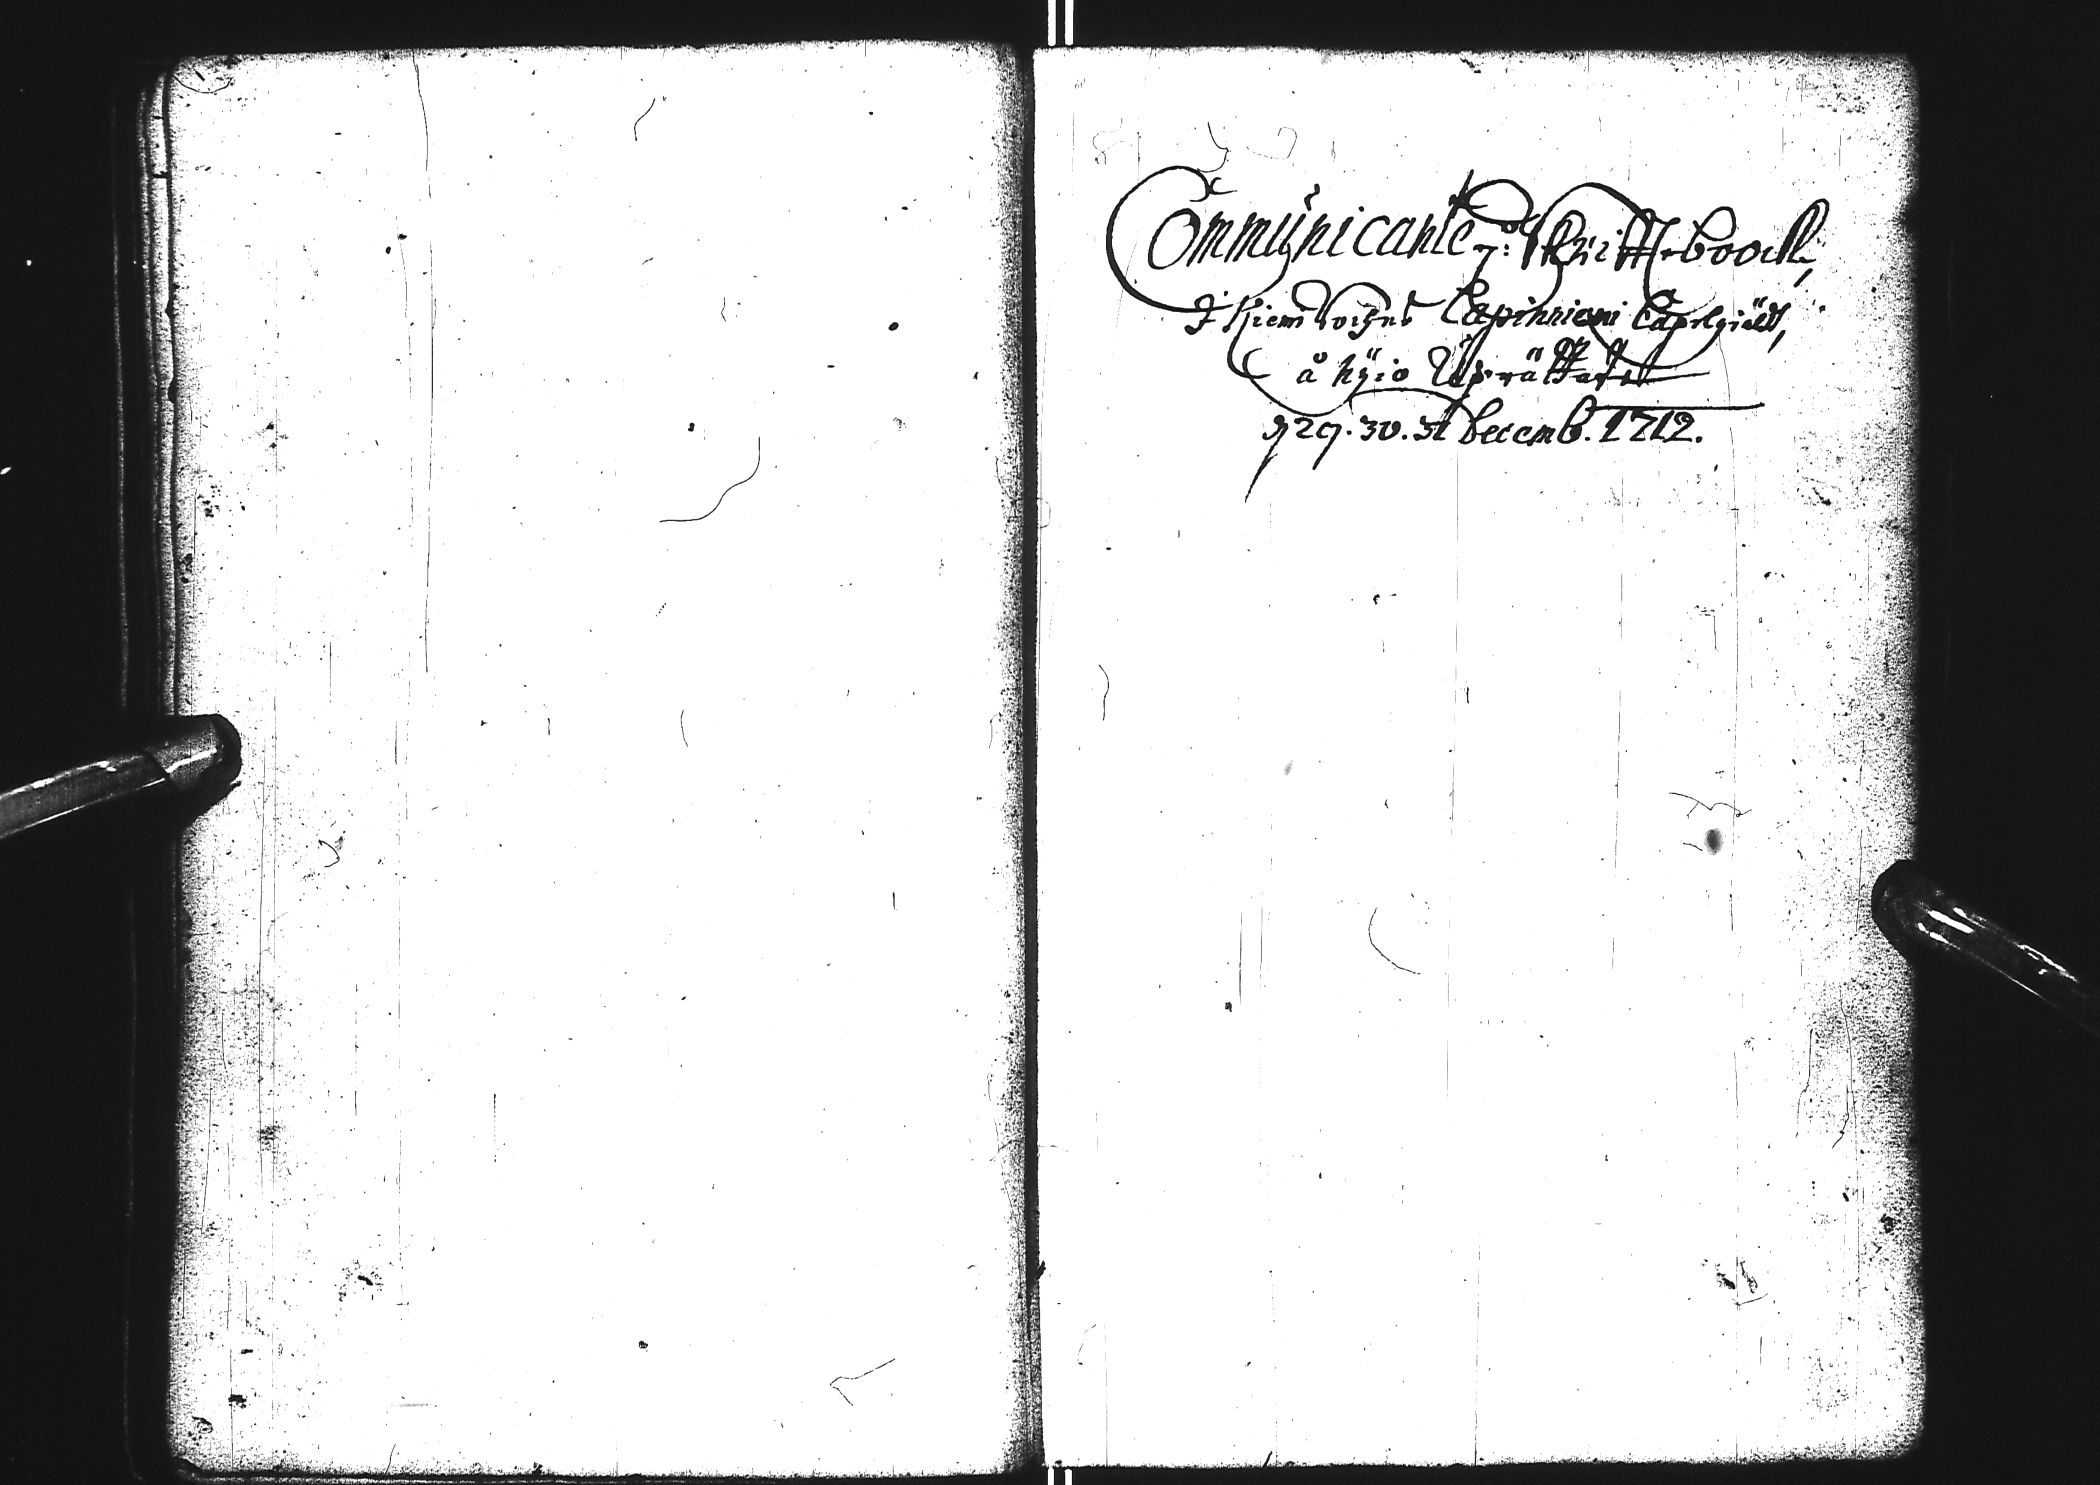 Communicante r: Skrifft-boock,
I Kiemi Sochns Lapinniemi Capelgiäld,
å nyio Uprättat
d 29. 30. 31 Decemb. 1712.